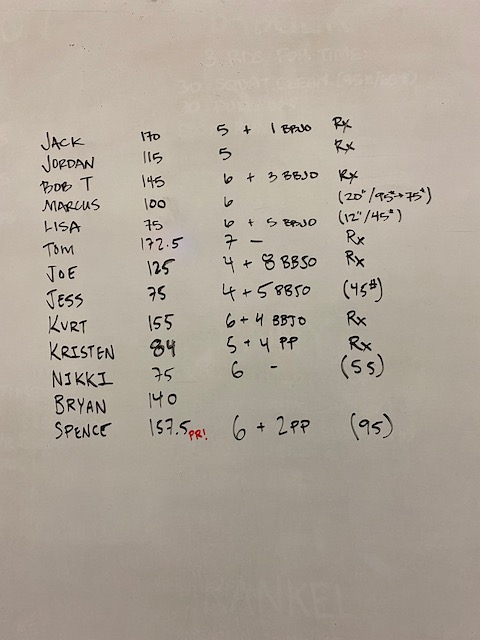 8 RDS FOR TIME
JACK 170 5 + 1 BBJO Rx
JORDAN 115 5 Rx
BOB T 145 6 + 3 BBJO Rx
MARCUS 100 6 (20"/95#→75#)
LISA 75 6 + 5 BBJO (12"/45#)
TOM 172.5 7 - Rx
JOE 125 4 + 8 BBJO Rx
JESS 75 4 + 5 BBJO (45#)
KURT 155 6 + 4 BBJO Rx
KRISTEN 84 5 + 4 PP Rx
NIKKI 75 6 - (55)
BRYAN 140
SPENCE 157.5 PR! 6 + 2PP (95)
RANKEL